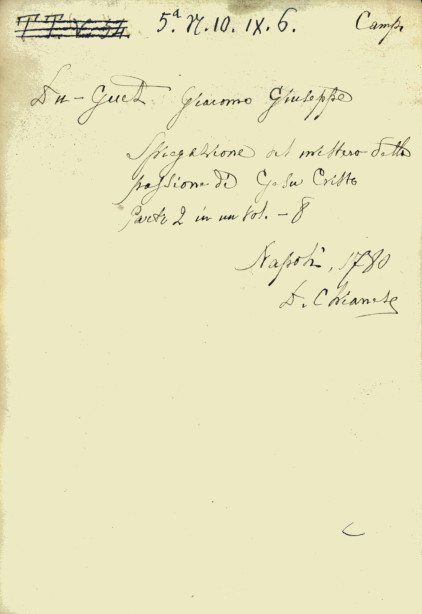 T T. V. 54 5.a N. 10. IX. 6. Camp.
Du-Guet Giacomo Giuseppe
Spiegazione del mistero della
passione di Gesu Cristo
Parti 2 in un vol. - 8
Napoli, 1780
D. Chianese